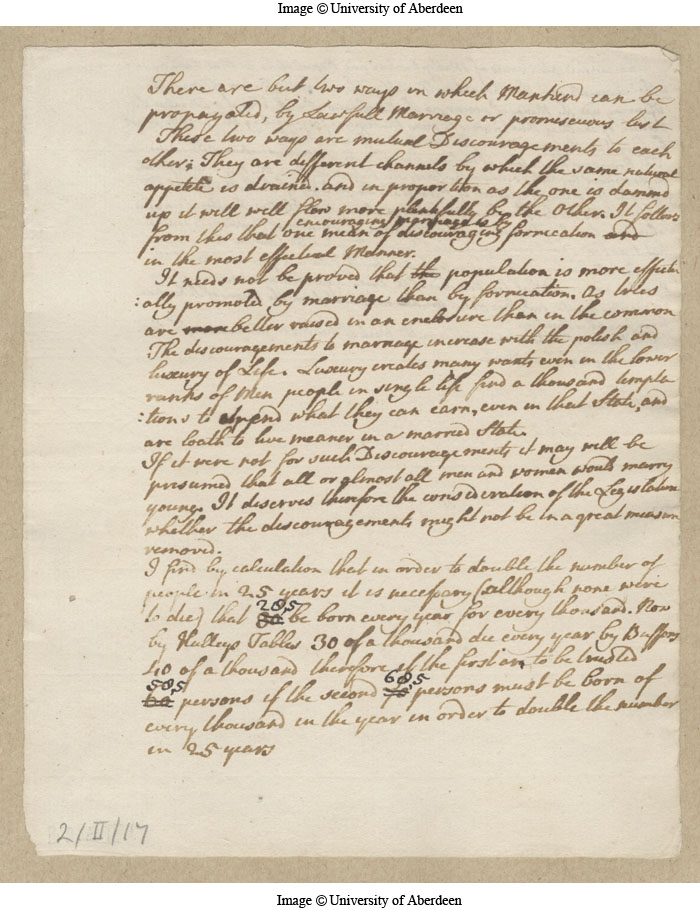 Image © University of Aberdeen
There are but two ways in which Mankind can be
propagated, by Lawfull Marriage or promiscuous lust
These two ways are mutual Discouragements to each
other; They are different channels by which the same natural
appetite is drained. and in proportion as the one is dammd
up it will will flow more plentifully by the Other. It follows
encouraging marriage is by
from this that one mean of discouraging fornication and
in the most effectual Manner.
It needs not be proved that the population is more effectu
:ally promoted by marriage than by fornication. As trees
are more better raised in an enclosure than in the common
The discouragements to marriage increase with the polish and
luxury of Life. Luxury creates many wants even in the lower
ranks of Men people in single life find a thousand tempta
:tions to spend what they can earn, even in that State, and
are loath to live meaner in a married State.
If it were not for such Discouragements it may well be
presumed that all or almost all men and women would marry
young. It deserves therefore the consideration of the Legislature
whether the discouragements might not be in a great measure
removed.
I find by calculation that in order to double the number of
people in 25 years it is necessary (although none were
28,5
to die) that be born every year for every thousand. Now
by Halleys Tables 30 of a thousand die every year by Buffons
40 of a thousand therefore if the first are to be trusted
58,5 68,5
60 persons if the second persons must be born of
every thousand in the year in order to double the number
in 25 years
2/II/17
Image © University of Aberdeen